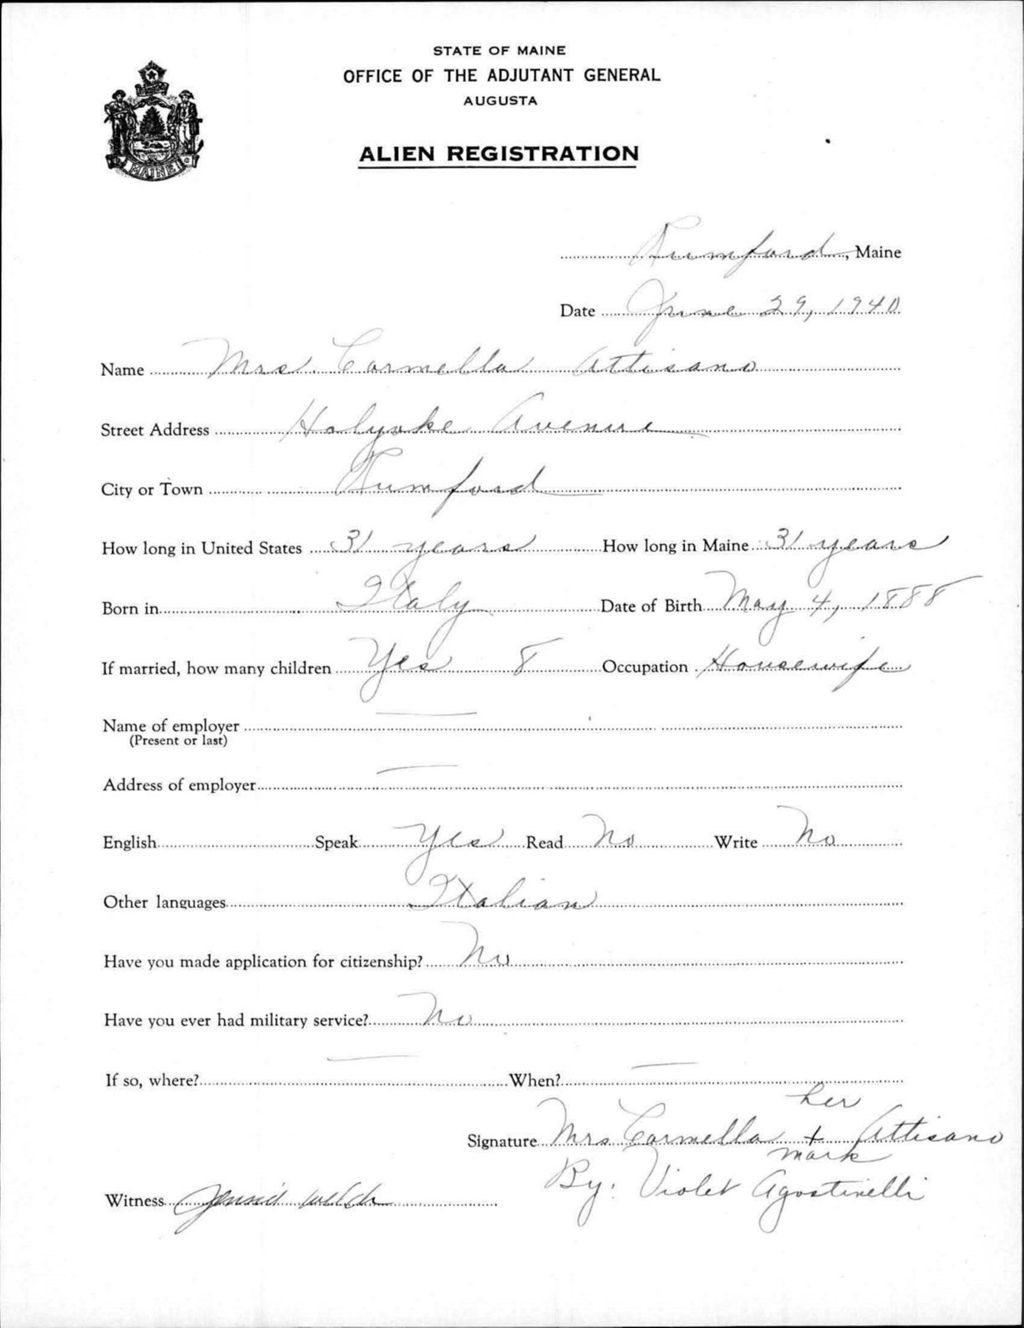 STATE OF MAINE
OFFICE OF THE ADJUTANT GENERAL
AUGUSTA
ALIEN REGISTRATION
MAINE
Rumford, Maine
Date June 29, 1940
Name Mrs. Carmella Attisano
Street Address Holyoke Avenue
City or Town Rumford
How long in United States 31 years How long in Maine 31 years
Born in Italy Date of Birth May 4, 1888
If married, how many children Yes 8 Occupation Housewife
Name of employer
(Present or last)
Address of employer
English Speak Yes Read No Write No
Other languages Italian
Have you made application for citizenship? No
Have you ever had military service? No
If so, where? When?
her
Signature Mrs Carmella + Attisano
mark
By: Violet Agostinelli
Witness Jennie Welch